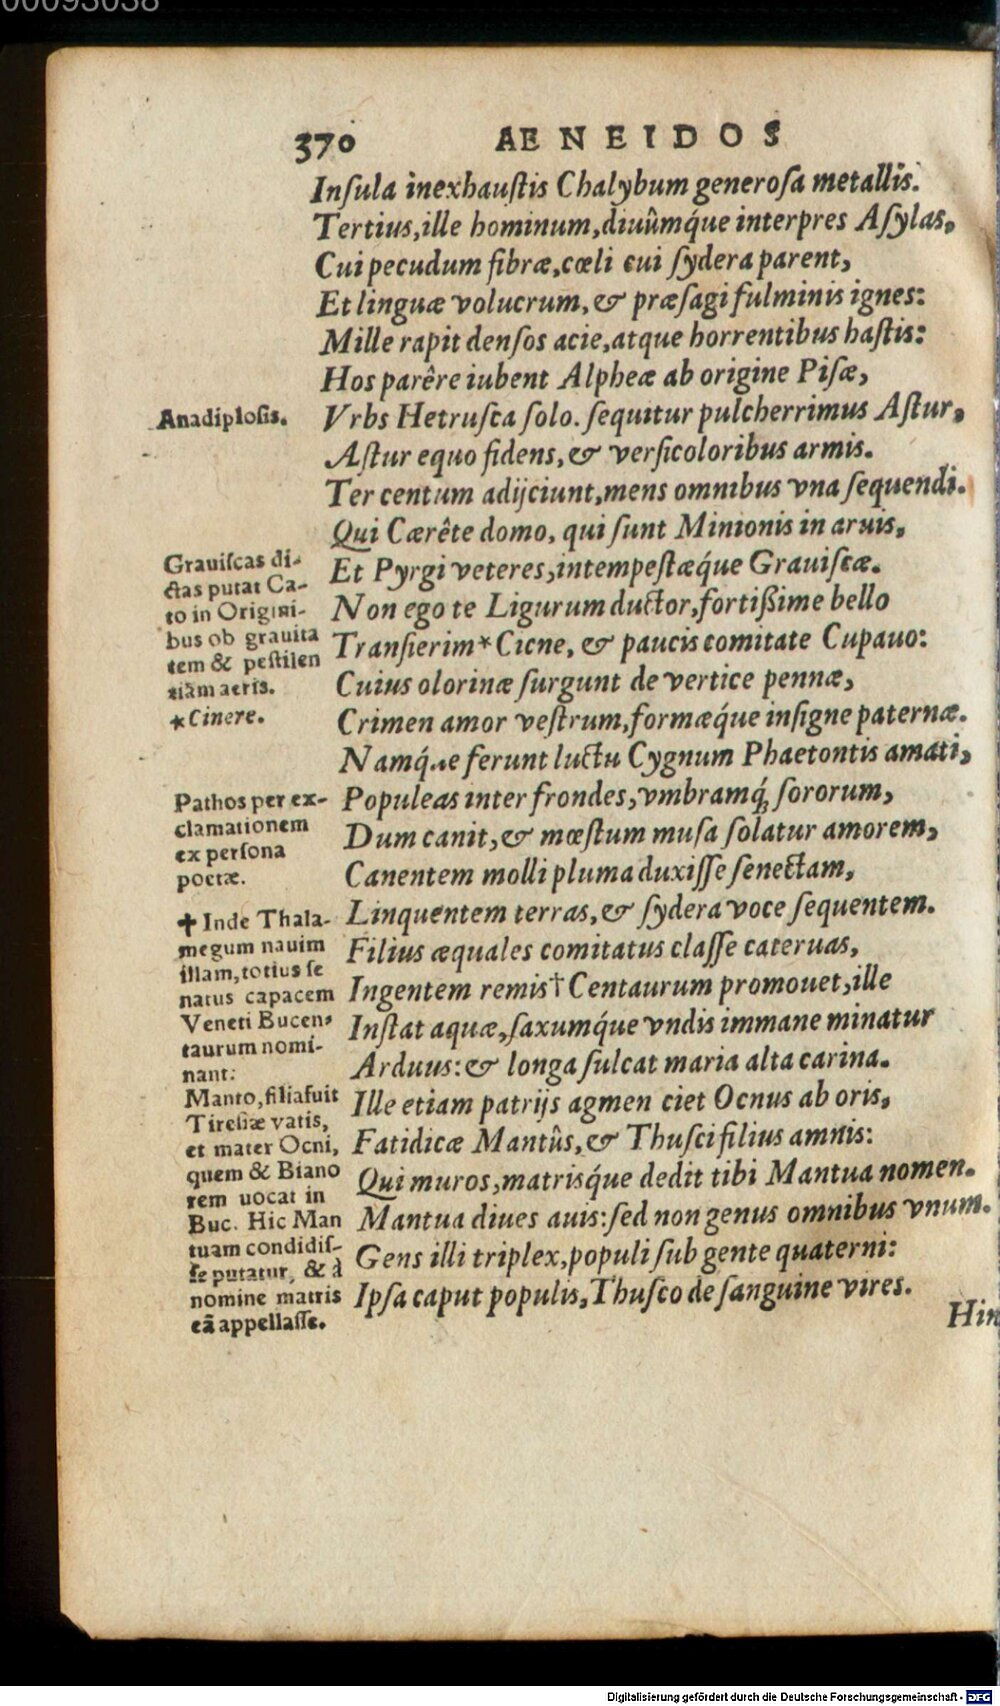 370 AENEIDOS
Inſula inexhauſtis Chalybum generoſa metallis.
Tertius,ille hominum,diuûmq́ue interpres Aſylas,
Cui pecudum fibræ,cœli cui ſydera parent,
Et linguæ volucrum,& præſagi fulminis ignes:
Mille rapit denſos acie,atque horrentibus haſtis:
Hos parêre iubent Alpheæ ab origine Piſæ,
Anadiploſis.
Vrbs Hetruſca ſolo. ſequitur pulcherrimus Aſtur,
Aſtur equo fidens,& verſicoloribus armis.
Ter centum adijciunt,mens omnibus vna ſequendi.
Qui Cærête domo, qui ſunt Minionis in aruis,
Et Pyrgi veteres,intempeſtæq́ue Grauiſcæ.
Non ego te Ligurum ductor,fortißime bello
Tranſierim*Cicne, & paucis comitate Cupauo:
Cuius olorinæ ſurgunt de vertice pennæ,
Crimen amor veſtrum,formæq́ue inſigne paternæ.
Namq́ue ferunt luctu Cygnum Phaetontis amati,
Populeas inter frondes,vmbramq́; ſororum,
Dum canit,& mœſtum muſa ſolatur amorem,
Canentem molli pluma duxiſſe ſenectam,
Linquentem terras,& ſydera voce ſequentem.
Filius æquales comitatus claſſe cateruas,
Ingentem remis†Centaurum promouet,ille
Inſtat aquæ,ſaxumq́ue vndis immane minatur
Arduus:& longa ſulcat maria alta carina.
Ille etiam patrijs agmen ciet Ocnus ab oris,
Fatidicæ Mantûs,& Thuſci filius amnis:
Qui muros,matrisq́ue dedit tibi Mantua nomen.
Mantua diues auis:ſed non genus omnibus vnum.
Gens illi triplex,populi ſub gente quaterni:
Ipſa caput populis,Thuſco de ſanguine vires.
Hin
Grauiſcas di-
ctas putat Ca-
to in Origini-
bus ob grauita
tem & peſtilen
tiam aeris.
*Cinere.
Pathos per ex-
clamationem
ex perſona
poetæ.
✝ Inde Thala-
megum nauim
illam,totius ſe
natus capacem
Veneti Bucen-
taurum nomi-
nant:
Manto,filia fuit
Tireſiæ vatis,
et mater Ocni,
quem & Biano
rem uocat in
Buc. Hic Man
tuam condidiſ-
ſe putatur, & à
nomine matris
eã appellaſſe.
00093038
Digitalisierung gefördert durch die Deutsche Forschungsgemeinschaft - DFG